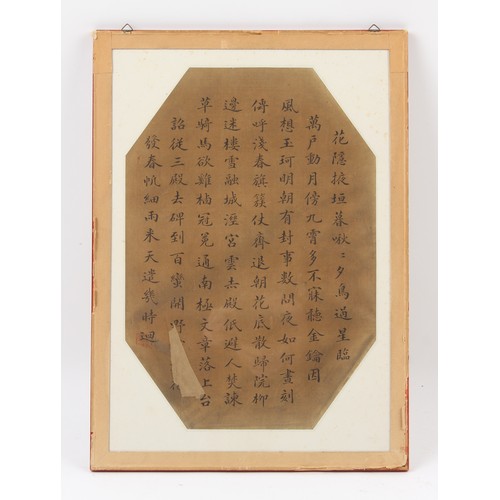 花隱掖垣暮啾〻夕鳥過星臨
萬戶動月傍九霄多不寐聽金鑰因
風想玉珂明朝有封事數問夜如何晝刻
傳呼淺春旗簇仗齊退朝花底散歸院柳
邊迷樓雪融城溼宮雲去殿低避人焚諫
草騎馬欲雞栖冠冕通南極文章落上台
詔從三殿去碑到百蠻開野
發春帆細雨來天遣幾時迴